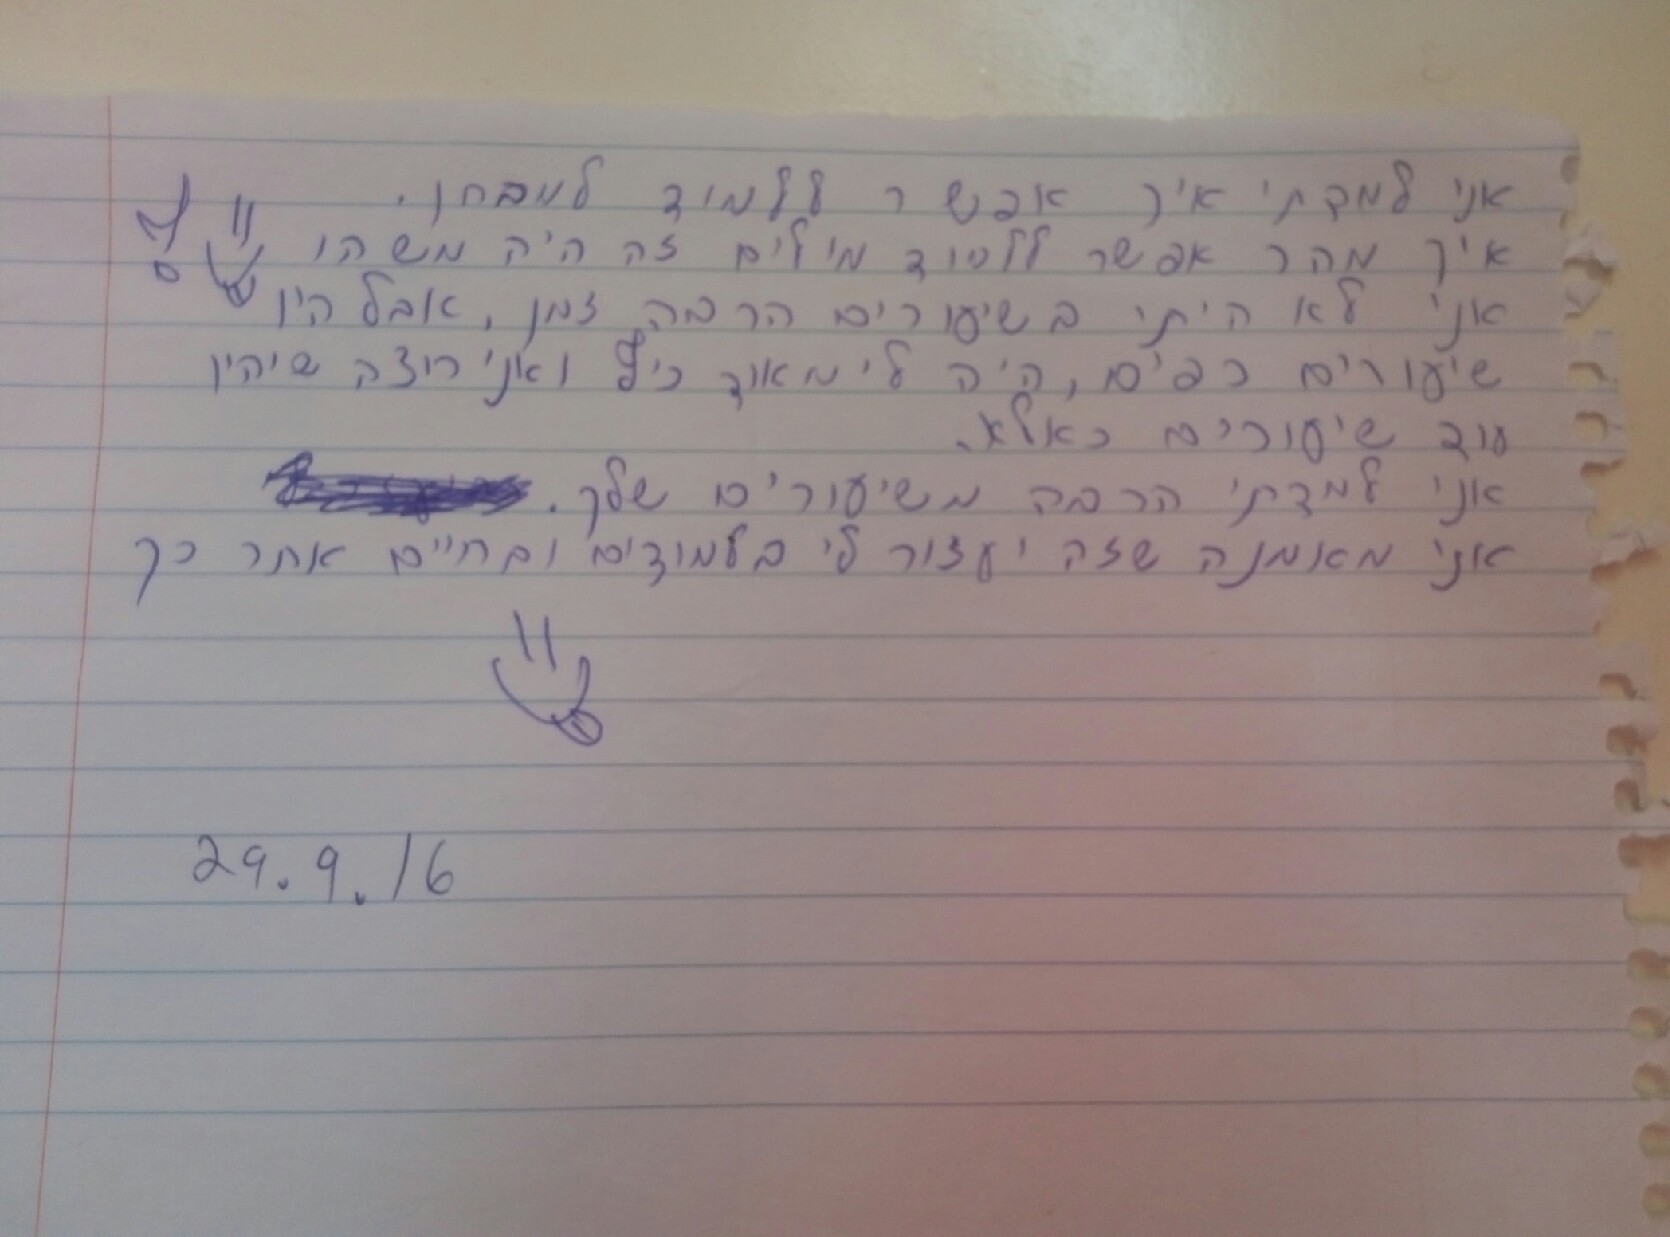 אני למדתי איך אפשר ללמוד למבחן.
איך מהר אפשר ללמוד מילים זה היה משהו
אני לא הייתי בשיעורים הרבה זמן, אבל היו
שיעורים כפים, היה לי מאוד כיף ואני רוצה שיהיו
עוד שיעורים כאלא.
אני למדתי הרבה משיעורים שלך.
אני מאומנה שזה יעזור לי בלמודים ובחיים אתר כך
29.9.16